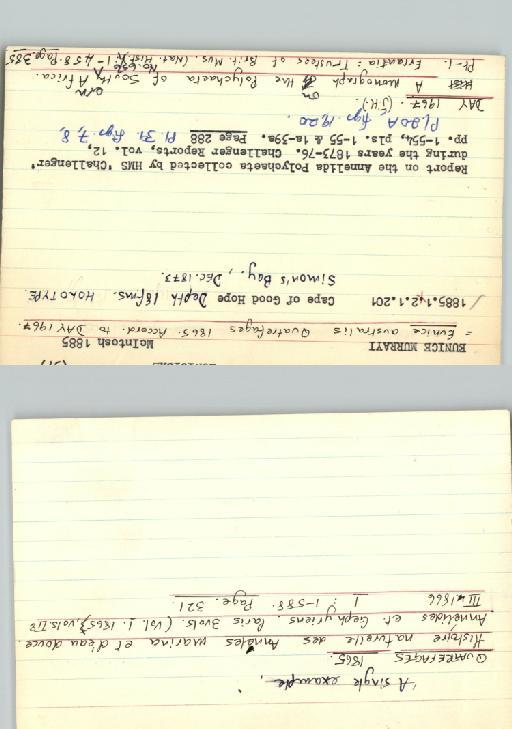 EUNICE MURRAYI McIntosh 1885
= Eunice australis Quatrefages 1865. Accord. to DAY 1967.
1885.12.1.201 Cape of Good Hope Depth 18fms. HOLOTYPE.
Simon's Bay., Dec. 1873.
Report on the Annelida Polychaeta collected by HMS "Challenger"
during the years 1873-76. Challenger Reports, vol. 12,
pp. 1-554, pls. 1-55 & 1a-39a. Page 288 Pl. 37. figs. 7, 8,
Pl. 20A figs. 19, 20.
DAY 1967. (J.H.).
A Monograph on the Polychaeta of South Africa.
No. 656
Pt. 1. Errantia: Trustees of Brit. Mus. (Nat. Hist.): 1-458. Page. 385
"A single example."
QUATREFAGES 1865.
Histoire naturelle des Annelés marins et d'eau douce.
Annélides et Gephyriens. Paris 3vols (Vol. 1. 1865
III 1866 I : 1-588. Page. 321.